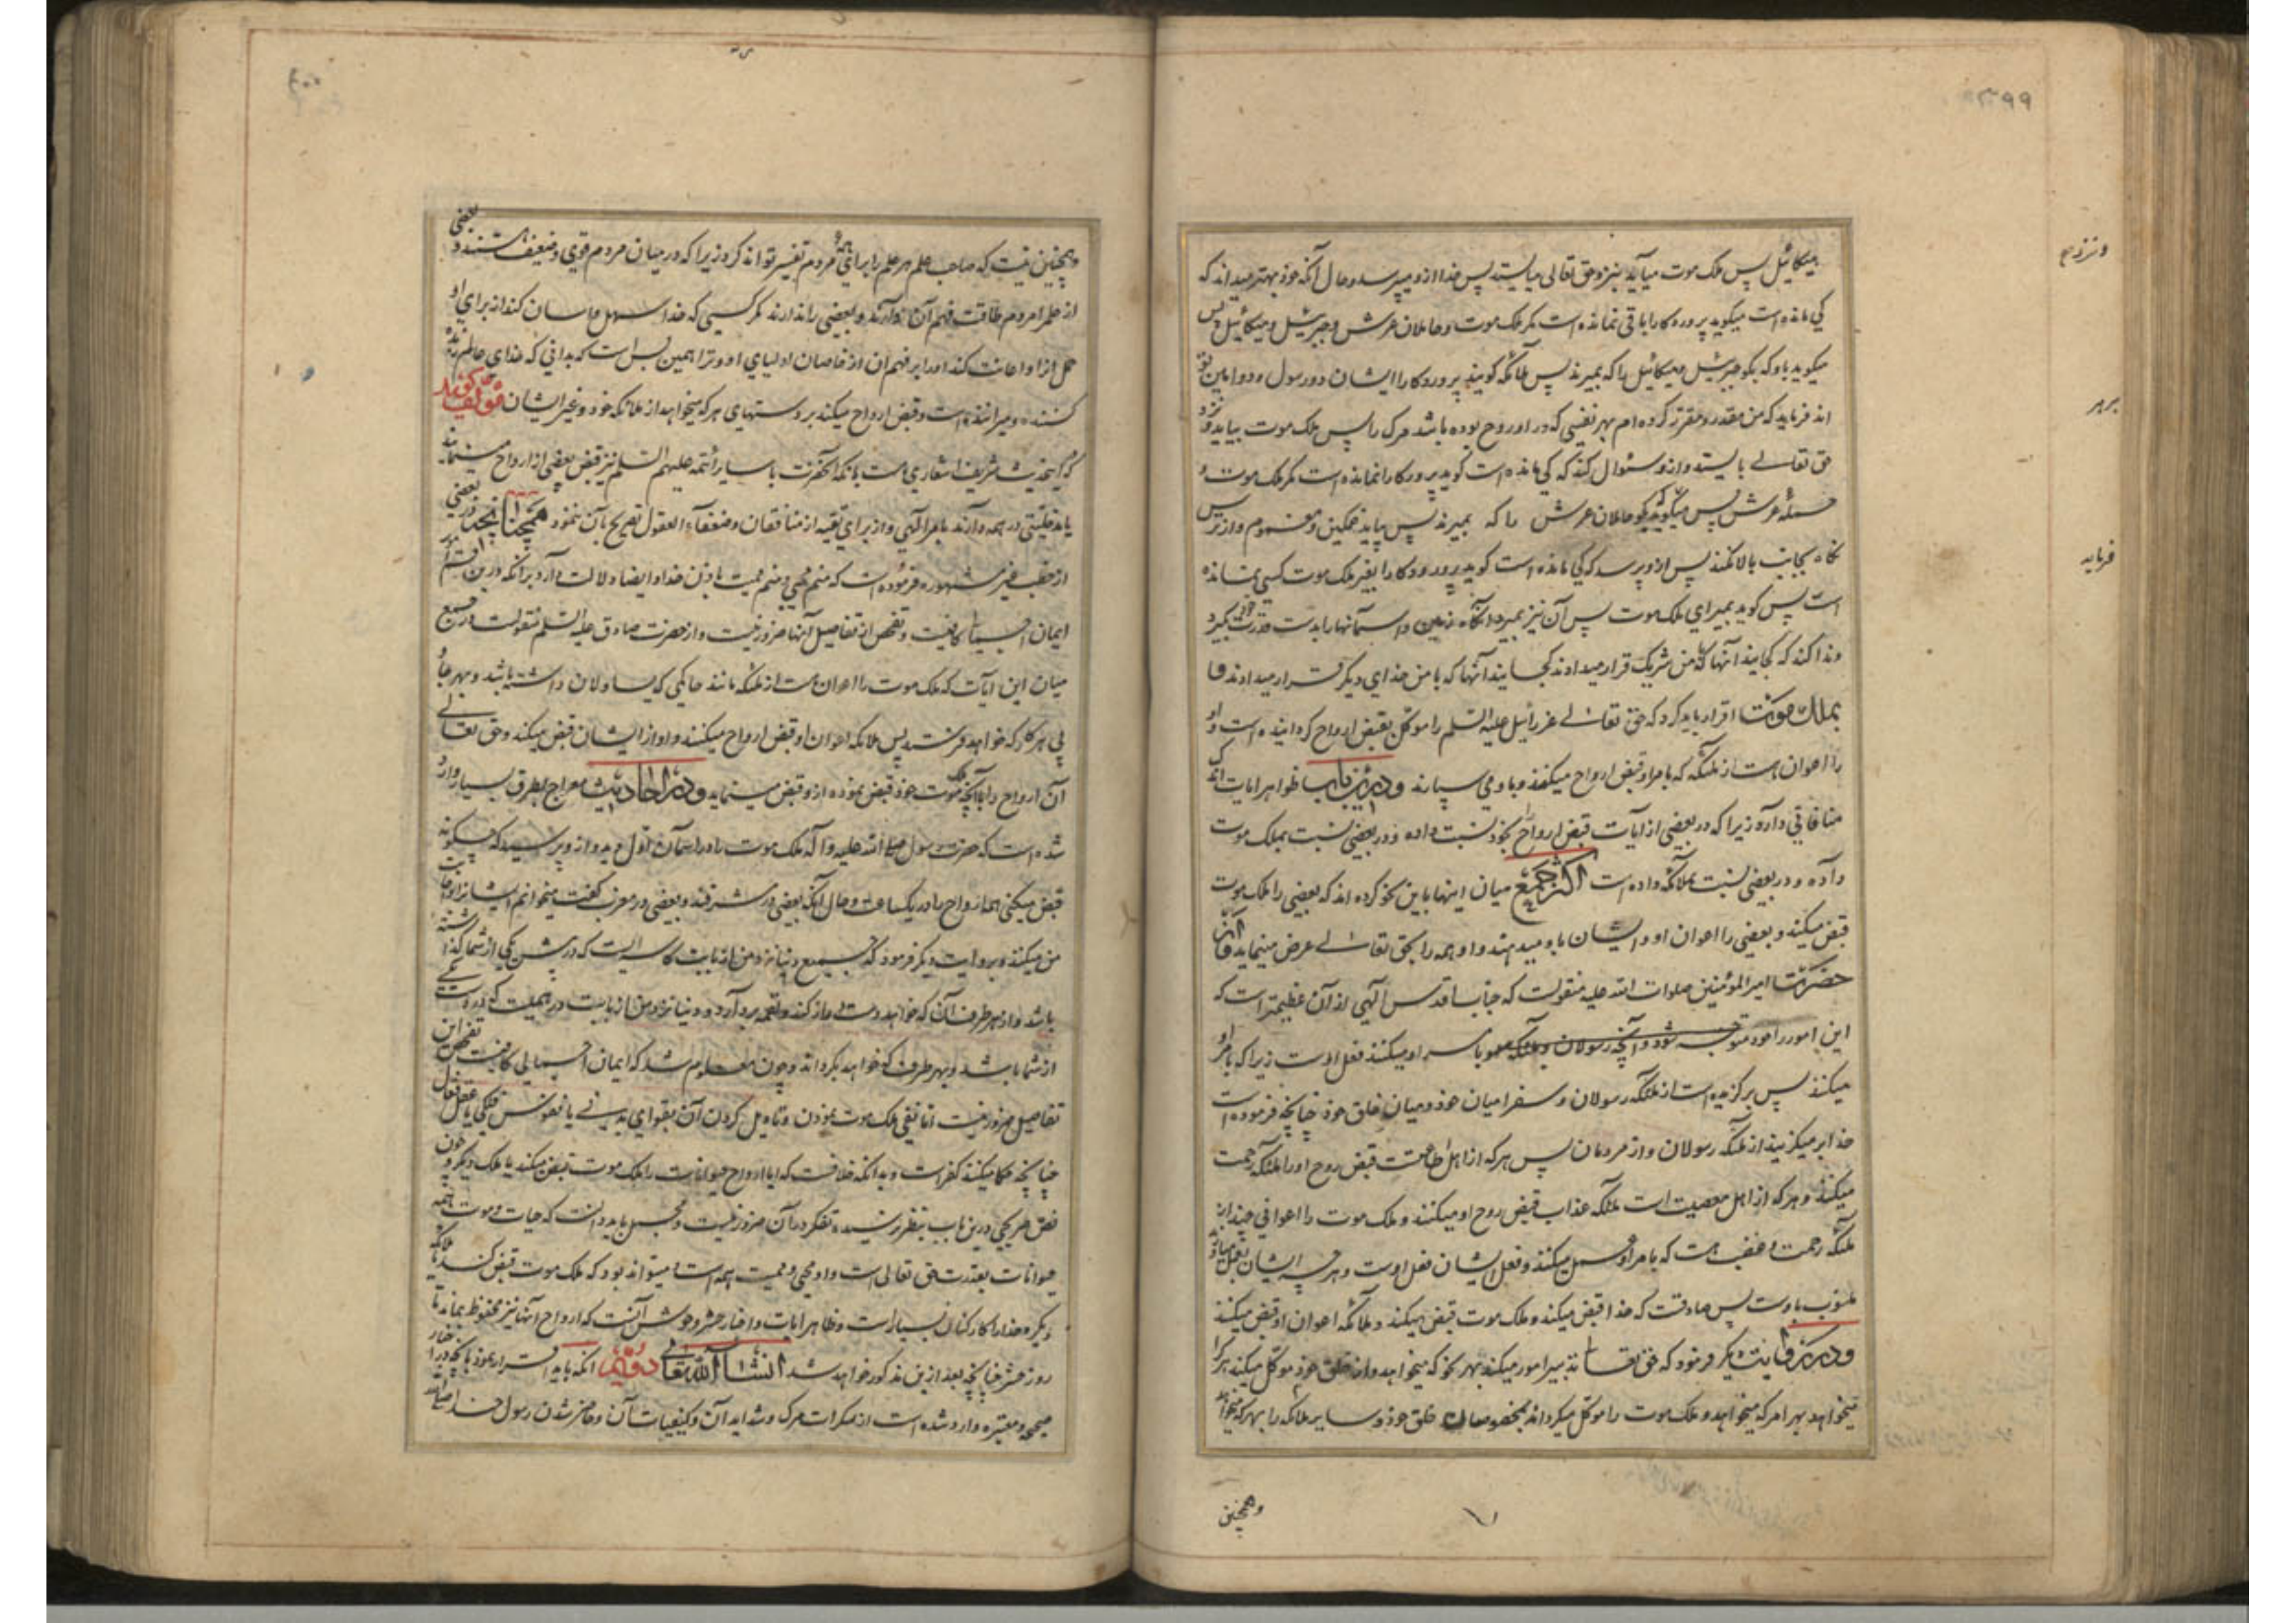 ۳۹۹
میکائیل پس ملک موت میآید بنزد حق تعالی میایستد پس خدا ازو میپرسد و حال آنکه خود بهتر میداند که
کی مانده است میگوید پروردکارا باقی نمانده است مکر ملک موت و حاملان عرش و جبرئیل و میکائیل پس
میکوید باو که بکو جبرئیل و میکائیل را که بمیرند پس ملائکه کویند پروردکارا ایشان دو رسول و دو امین تو
اند فرماید که من مقدر و مقرر کرده ام بهر نفسی که در او روح بوده باشد مرک را پس ملک موت بیاید و نزد
حق تعالی بایستد و ازو سئوال کند که کی مانده است کوید پروردکارا نمانده است مکر ملک موت و
حمله عرش پس میگوید که بکو حاملان عرش را که بمیرند پس بیاید غمکین و مغموم و از ترس
نکاه بجانب بالا نکند پس ازو پرسد که کی مانده است کوید پروردکارا بغیر ملک موت کسی نمانده
است پس کوید بمیر ای ملک موت پس آن نیز بمیرد آنکاه زمین و آسمانها را بدست قدرت خود بگیرد
و ندا کند که کجایند آنها که با من شریک قرار میدادند کجایند آنها که با من خدای دیگر قرار میدادند و اما
بملک موت اقرار باید کرد که حق تعالی عزرائیل علیه السلم را موکل بقبض ارواح کردانیده است و او
را اعوان هست از ملئکه که بامر او قبض ارواح میکنند و باو می سپارند و درین باب ظواهر ایات اندک
منافاتی دارد زیرا که در بعضی از ایات قبض ارواح بخود نسبت داده و در بعضی نسبت بملک موت
داده و در بعضی نسبت بملائکه داده است اکثر جمع میان اینها باین نحو کرده اند که بعضی را ملک موت
قبض میکند و بعضی را اعوان او و ایشان باو میدهند و او همه را بحق تعالی عرض مینماید و از
حضرت امیر المؤمنین صلوات الله علیه منقولست که جناب اقدس الهی از آن عظیمتر است که
این امور را خود متوجه شود و آنچه رسولان و ملئکه بامر او میکنند فعل اوست زیرا که بامر او
میکنند پس برکزیده است از ملئکه رسولان و سفرا میان خود و میان خلق خود چنانچه فرموده است
خدا بر میکزیند از ملئکه رسولان و از مردمان پس هرکه از اهل طاعتست قبض روح او را ملئکه رحمت
میکنند و هرکه از اهل معصیت است ملئکه عذاب قبض روح او میکنند و ملک موت را اعوانی چند از
ملئکه رحمت و غضب هست که بامر او عمل میکنند و فعل ایشان فعل اوست و هر چه ایشان بعمل میاورند
منسوب باوست پس صادقست که خدا قبض میکند و ملک موت قبض میکند و ملائکه اعوان او قبض میکنند
و در روایت دیگر فرمود که حق تعالی تدبیر امور میکند بهر نحو که میخواهد و از خلق خود موکل میکند هر کرا
میخواهد بهر امر که میخواهد و ملک موت را موکل میکرداند بمخصوصان خلق خود و سایر ملائکه را بهر که میخواهد
وهمچنین
و نزد
بر هر
فرماید
۴۰۰
وهمچنین نیست که صاحب علم هر علم را برای همه مردم تفسیر تواند کرد زیرا که در میان مردم قوی و ضعیف هستند و بعضی
از علم را مردم طاقت فهم آن دارند و بعضی را ندارند مکر کسی که خدا سهل و اسان کند از برای او
حمل انرا و اعانت کند او را بر فهم ان از خاصان اولیای او و ترا همین بس است که بدانی که خدای عالم زنده
کننده و میراننده است و قبض ارواح میکند بر دستهای هر که میخواهد از ملائکه خود و غیر ایشان مؤلف کوید
که این حدیث شریف اشعاری هست بانکه آنحضرت با سایر أئمه علیهم السلم نیز قبض بعضی از ارواح مینمایند
یا مدخلیتی در همه دارند بامر الهی و از برای تقیه از منافقان و ضعفاء العقول تصریح بآن ننمود همچنانچه در بعضی
از خطب غیر مشهوره فرموده است که منم محیی و منم ممیت باذن خدا و ایضا دلالت دارد برانکه درین قسم امور
ایمان اجمالی کافیست و تفحص از تفاصیل آنها ضرور نیست و از حضرت صادق علیه السلم منقولست در جمع
میان این ایات که ملک موت را اعوان هست از ملئکه مانند حاکمی که یساولان داشته باشد و بهر جا و
پی هر کار که خواهد فرستد پس ملائکه اعوان او قبض ارواح میکنند و او از ایشان قبض میکند و حق تعالی
آن ارواح را با آنچه ملک موت خود قبض نموده ازو قبض مینماید و در احادیث معراج بطرق بسیار وارد
شده است که حضرت رسول صلی الله علیه و آله ملک موت را در اسمان اول دید و ازو پرسید که چکونه
قبض میکنی همه ارواح را در یکساعت و حال آنکه بعضی در مشرقند و بعضی در مغرب کفت میخوانم ایشانرا و اجابت
من میکنند و بروایت دیگر فرمود که جمیع دنیا نزد من از بابت کاسه ایست که در پیش یکی از شما گذاشته
باشد و از هر طرف آن که خواهد دست دراز کند و لقمه بردارد و دنیا نزد من از بابت درهمیست که در دست یکی
از شما باشد و بهر طرف که خواهد بکرداند و چون معلوم شد که ایمان اجمالی کافیست تفحص این
تفاصیل ضرور نیست اما نفی ملک موت نمودن و تاویل کردن آن بقوای بدنی یا نفوس فلکی یا عقل فعال
چنانچه حکما میکنند کفر است و بدانکه خلافست که ایا ارواح حیوانات را ملک موت قبض میکند یا ملک دیگر و چون
نص صریحی درین باب بنظر نرسیده تفکر در آن ضرور نیست و مجمل باید دانست که حیات و موت همه
حیوانات بقدرت حق تعالی است و او محیی و ممیت همه است و میتواند بود که ملک موت قبض کند یا ملائکه
دیگر و خدا را کارکنان بسیار است و ظاهر ایات و اخبار حشر وحوش آنست که ارواح آنها نیز محفوظ بماند تا
روز حشر چنانچه بعد ازین مذکور خواهد شد انشا الله تعالی دوم انکه باید اقرار نمود بانچه در اخبار
صحیحه و معتبره وارد شده است از سکرات مرک و شداید آن و کیفیات آن و حاضر شدن رسول خدا صلی الله